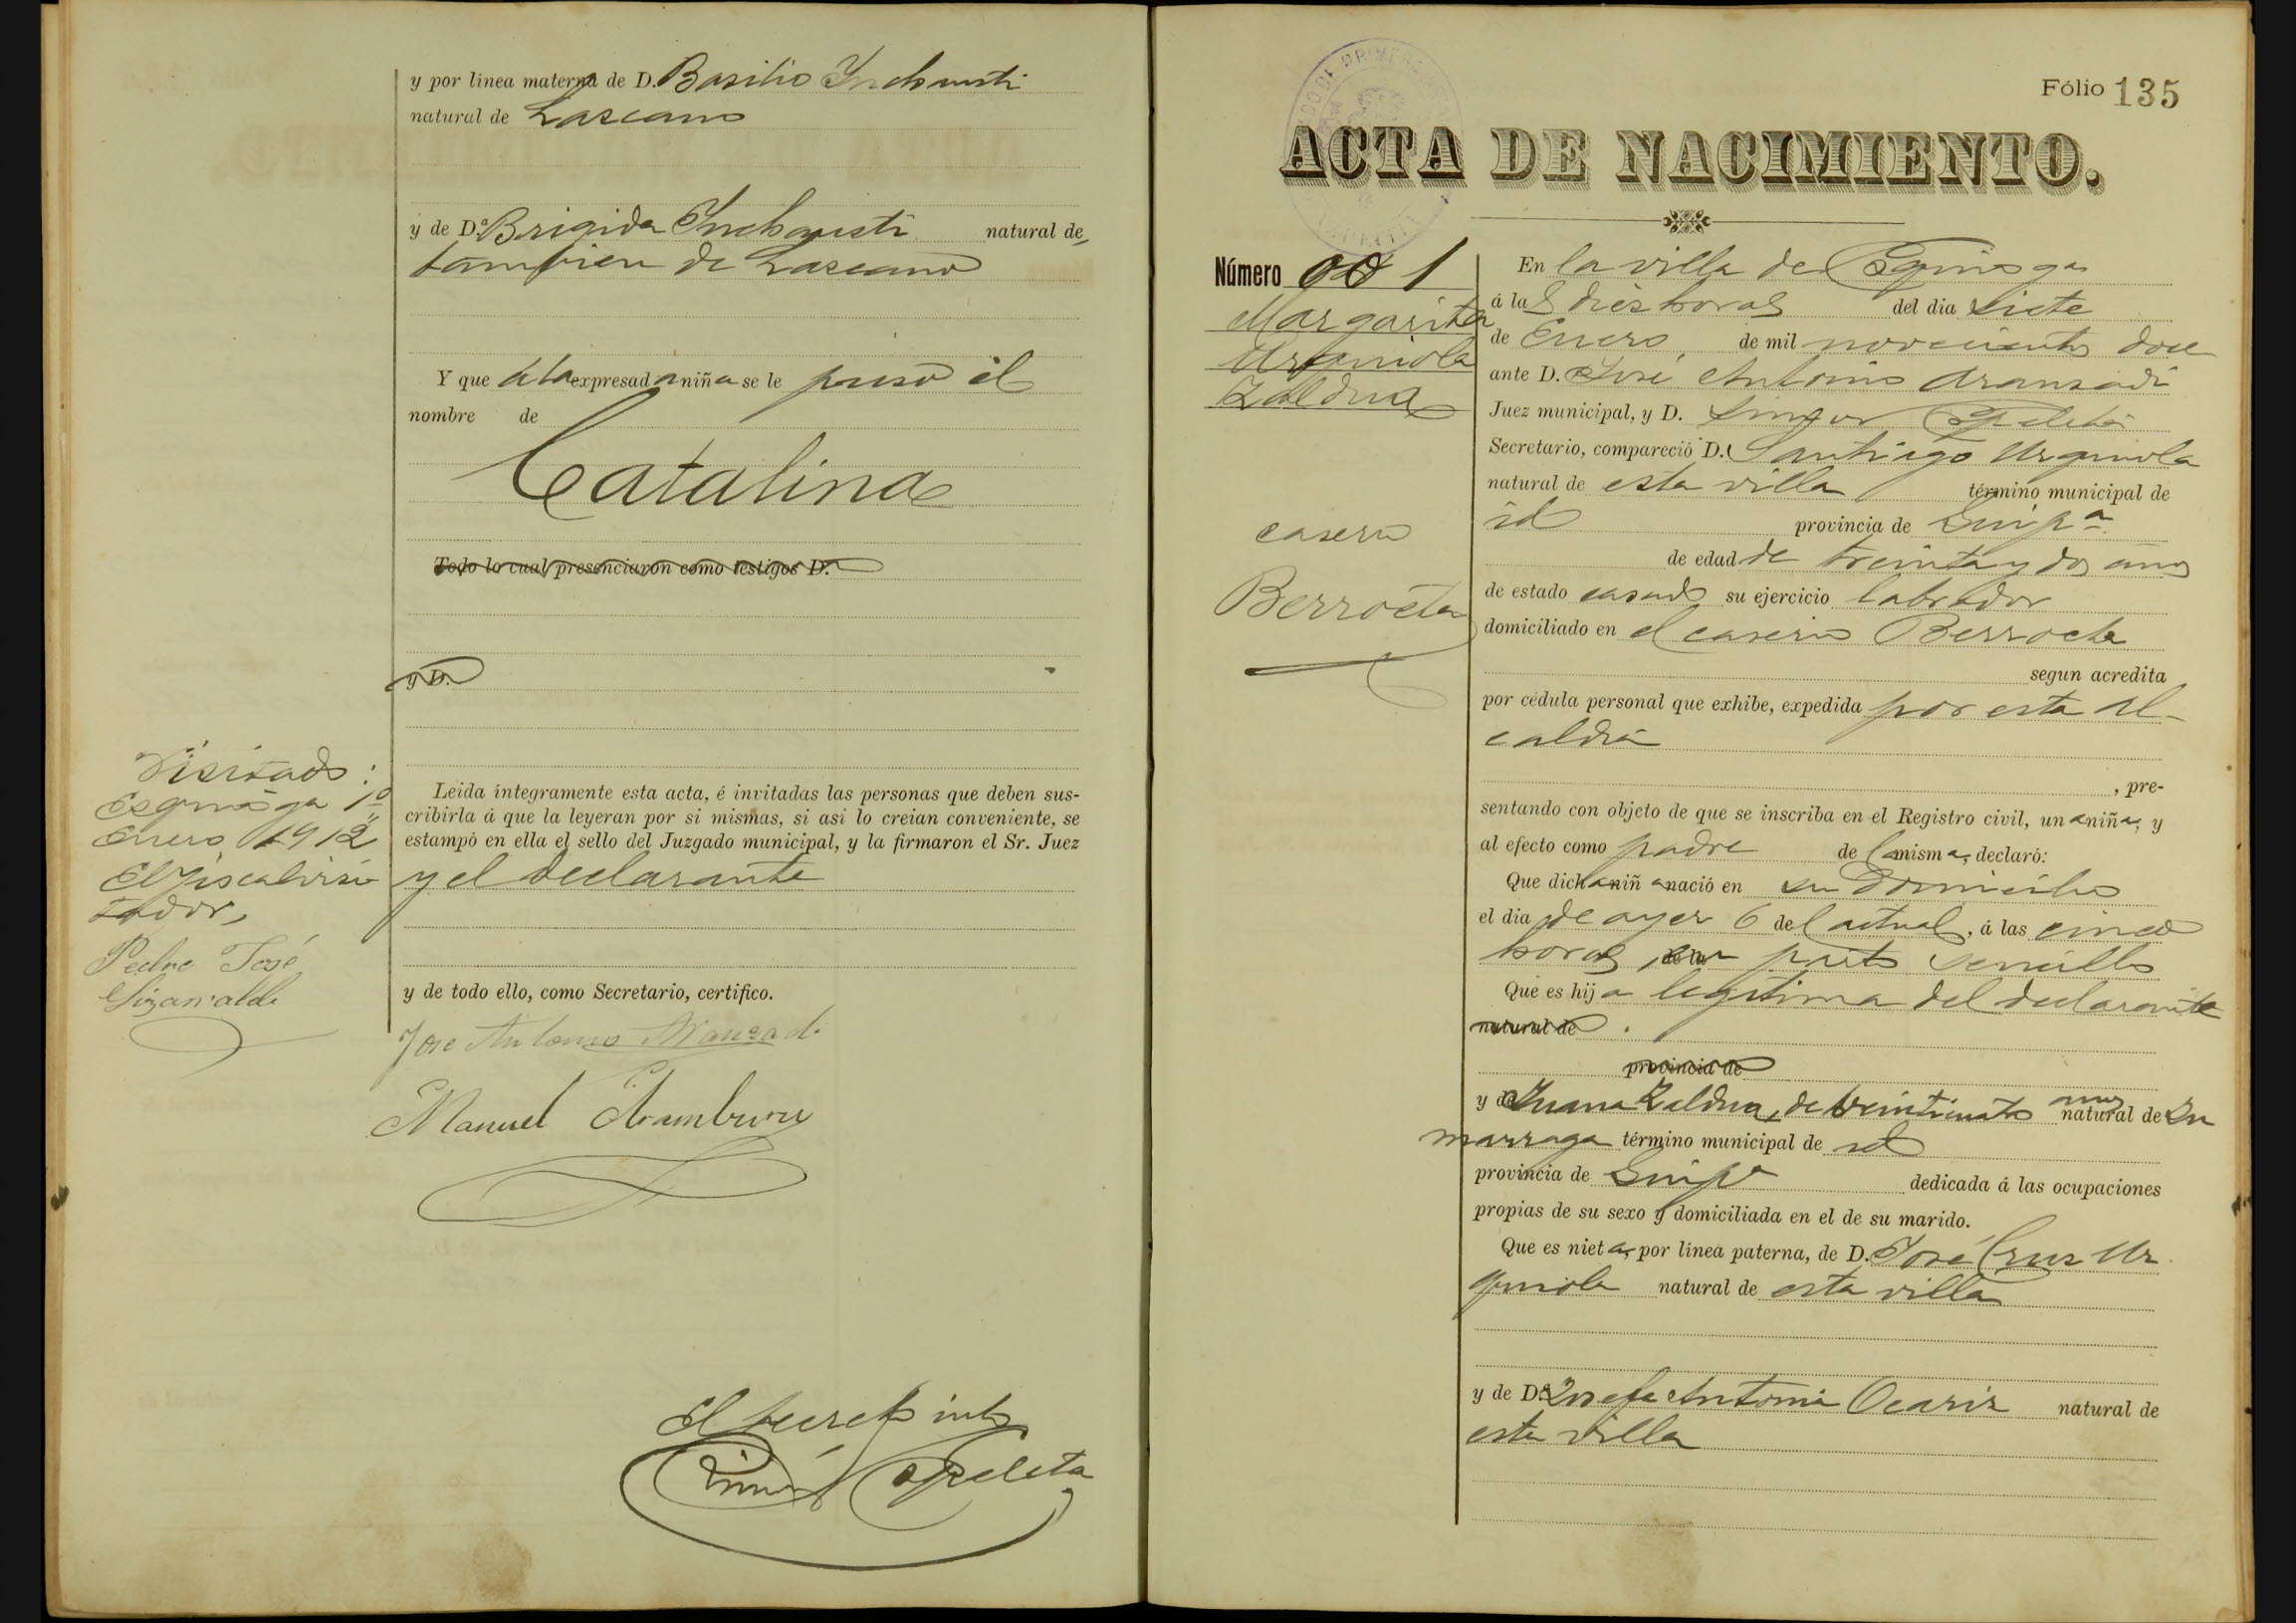 y por línea materna de D. Basilio Inchausti
natural de Lazcano
y de D.ª Brigida Inchausti natural de
tambien de Lazcano
Y que á la expresada niña se le puso el
nombre de
Catalina
Todo lo cual presenciaron como testigos D.
y D.
Visitado:
Ezquioga 1º
Enero 1912
El Fiscal visi
tador,
Pedro José
Lizarralde
Leida íntegramente esta acta, é invitadas las personas que deben sus-
cribirla á que la leyeran por si mismas, si asi lo creian conveniente, se
estampó en ella el sello del Juzgado municipal, y la firmaron el Sr. Juez
y el declarante
y de todo ello, como Secretario, certifico.
Jose Antonio Aranzadi
Manuel Aramburu
El Secret.º int.º
Simón Apeleta
Fólio 135
ACTA DE NACIMIENTO.
Número 001
Margarita
Urquiola
Zaldua
caserio
Berroeta
En la villa de Ezquioga
á las dies horas del dia siete
de Enero de mil novecientos doce
ante D. José Antonio Aranzadi
Juez municipal, y D.
Secretario, compareció D. Santiago Urquiola
natural de esta villa término municipal de
id provincia de Guip.ª
de edad de treinta y dos años
de estado casado su ejercicio labrador
domiciliado en el caserio Berroeta
segun acredita
por cédula personal que exhibe, expedida por esta Al-
caldia
, pre-
sentando con objeto de que se inscriba en el Registro civil, una niña, y
al efecto como padre de la misma, declaró:
Que dicha niña nació en su domicilio
el dia de ayer 6 del actual, á las cinco
horas, parto sencillo
Que es hija legitima del declarante
natural de
provincia de
y de Juana Zaldua, de veinticuatro años natural de Zu
marraga término municipal de id
provincia de Guip.ª dedicada á las ocupaciones
propias de su sexo y domiciliada en el de su marido.
Que es nieta, por línea paterna, de D. José Cruz Ur
quiola natural de esta villa
y de D.ª Josefa Antonia Ocariz natural de
esta villa